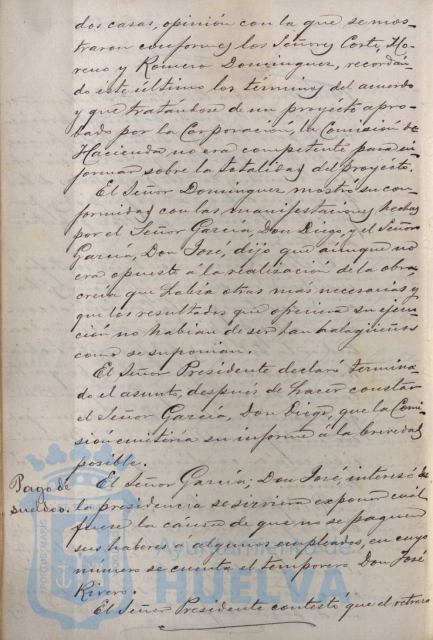 dos casas, opinión con la que se mos-
traron conformes los Señores Corte, Mo-
reno y Romero Dominguez, recordan-
do este último los términos del acuerdo
y que tratándose de un proyecto apro-
bado por la Corporación, la Comisión de
Hacienda no era competente para in-
formar sobre la totalidad del proyecto.
El Señor Dominguez mostró su con-
formidad con las manifestaciones hechas
por el Señor Garcia, Don Diego, y el Señor
Garcia, Don José, dijo que aunque no
era opuesto á la realización de la obra,
creia que habia otras mas necesarias y
que los resultados que ofreciera su ejecu-
ción no habian de ser tan halagüeños
como se suponian.
El Señor Presidente declaró termina-
do el asunto, después de hacer constar
el Señor Garcia, Don Diego, que la Comi-
sión emitiria su informe á la brevedad
posible.
Pago de
sueldos.
El Señor Garcia, Don José, interesó de
la presidencia se sirviera exponer cuál
fuere la causa de que no se paguen
sus haberes á algunos empleados, en cuyo
número se cuenta el temporero Don José
Rivero.
El Señor Presidente contestó que el retraso
Ayuntamiento de
HUELVA
PORTUS MARIS